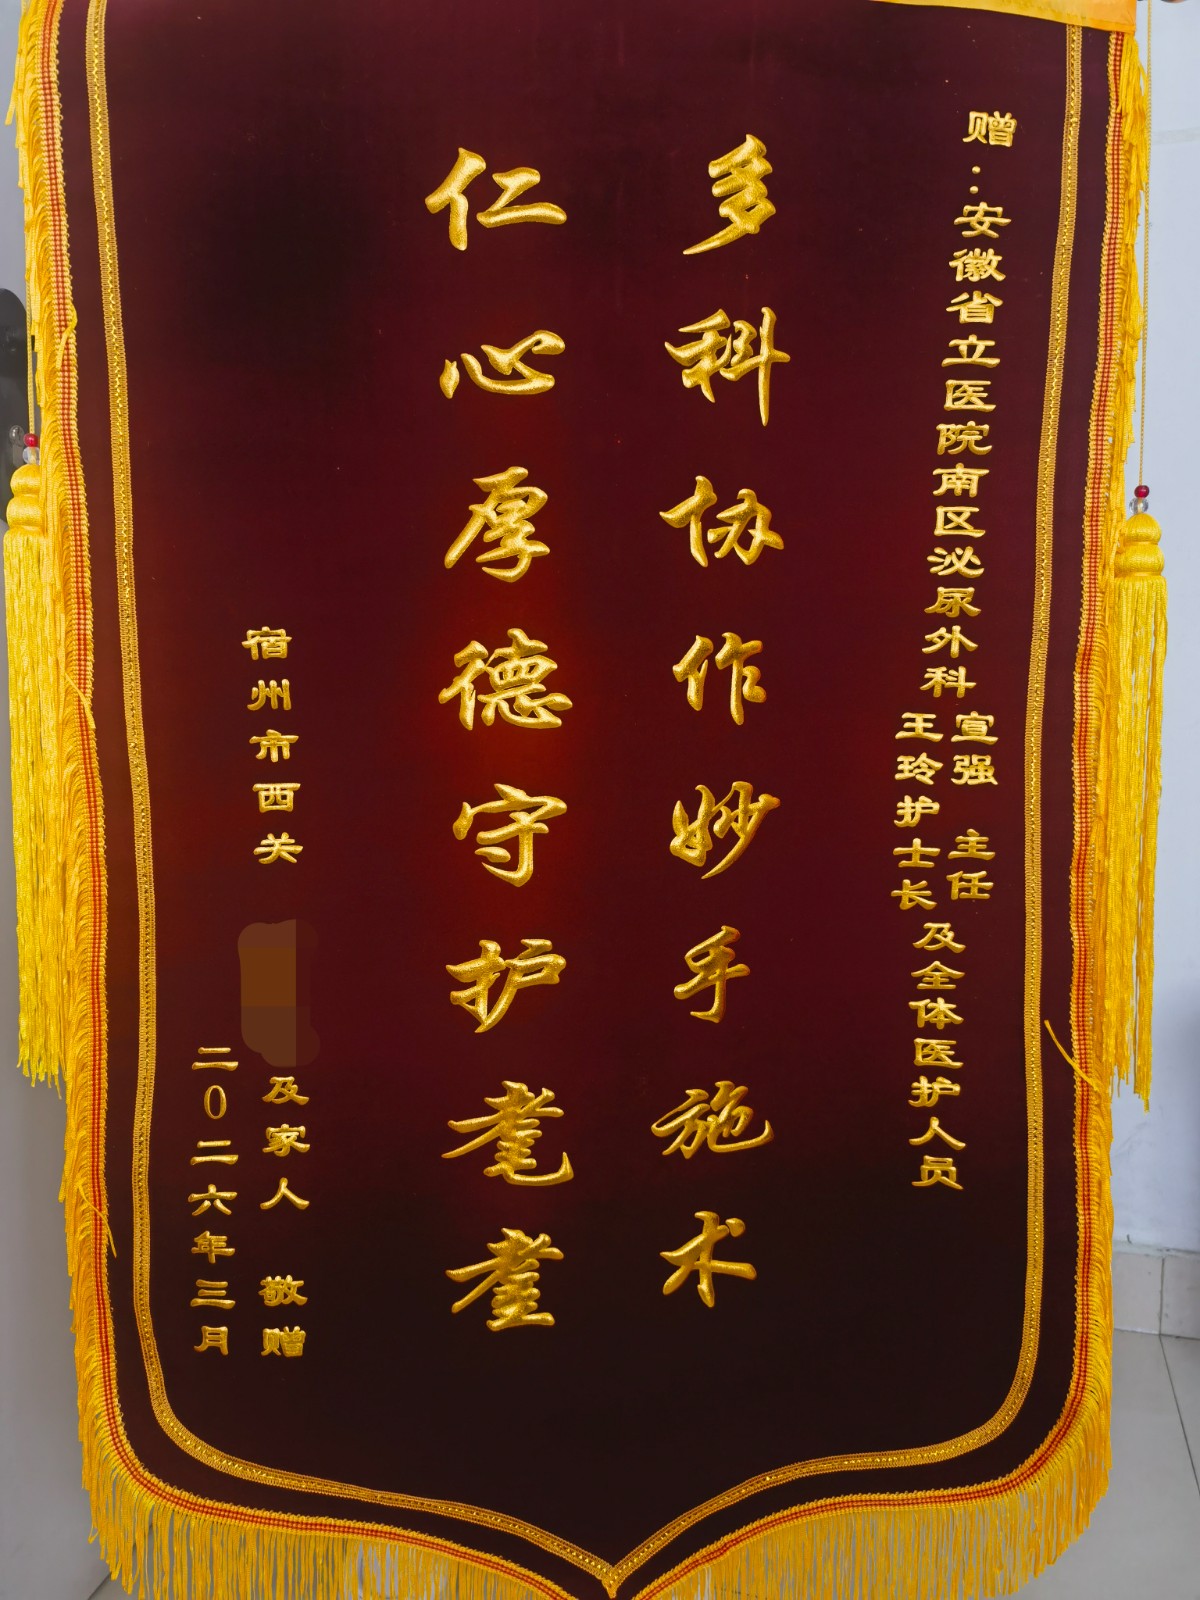 赠：安徽省立医院南区泌尿外科
宣强 主任
王玲护士长
及全体医护人员
多科协作妙手施术
仁心厚德守护耄耋
宿州市西关
及家人 敬赠
二0二六年三月